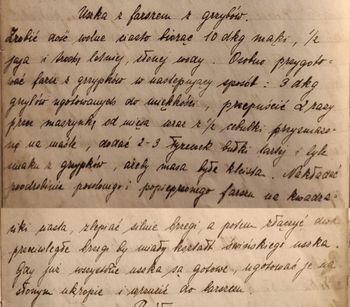 Uszka z farszem z grzybów.
Zrobić dość wolne ciasto biorąc 10 dkg mąki, 1/2
jaja i trochę letniej, słonej wody. Osobno przygoto-
wać farsz z grzybków w następujący sposób: 3 dkg
grzybów ugotowanych do miękkości, przepuścić 2 razy
przez maszynkę od mięsa wraz z 1/2 cebulki przysmażo-
ną na maśle, dodać 2-3 łyżeczek bułki tartej i tyle
smaku z grzybków, ażeby masa była kleista. Nakładać
posolonego i popieprzonego farszu na kwadra-
ciki ciasta, zlepiać silnie brzegi, a potem złączyć dwa
przeciwległe brzegi by miały kształt świńskiego uszka.
Gdy już wszystkie uszka są gotowe, ugotować je na
słonym ukropie i wrzucić do barszczu.